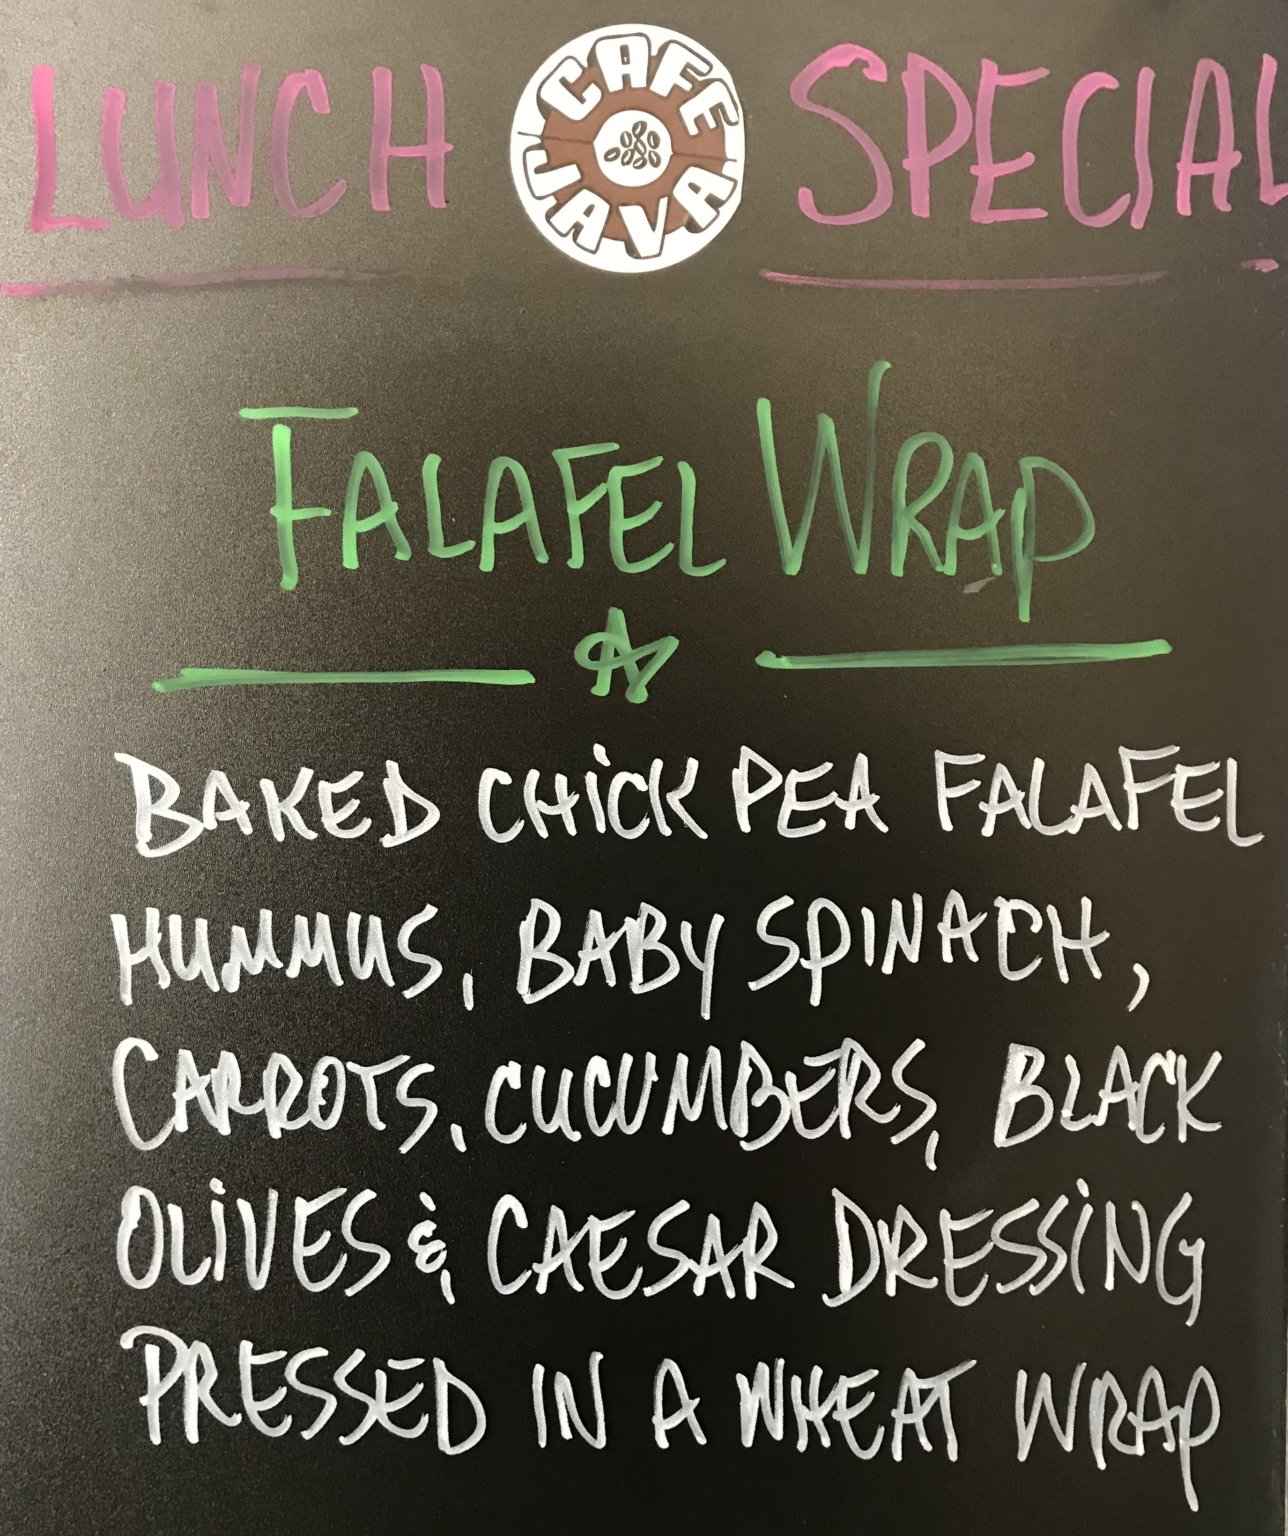 LUNCH CAFE JAVA SPECIAL
FALAFEL WRAP
BAKED CHICK PEA FALAFEL
HUMMUS, BABY SPINACH,
CARROTS, CUCUMBERS, BLACK
OLIVES & CAESAR DRESSING
PRESSED IN A WHEAT WRAP